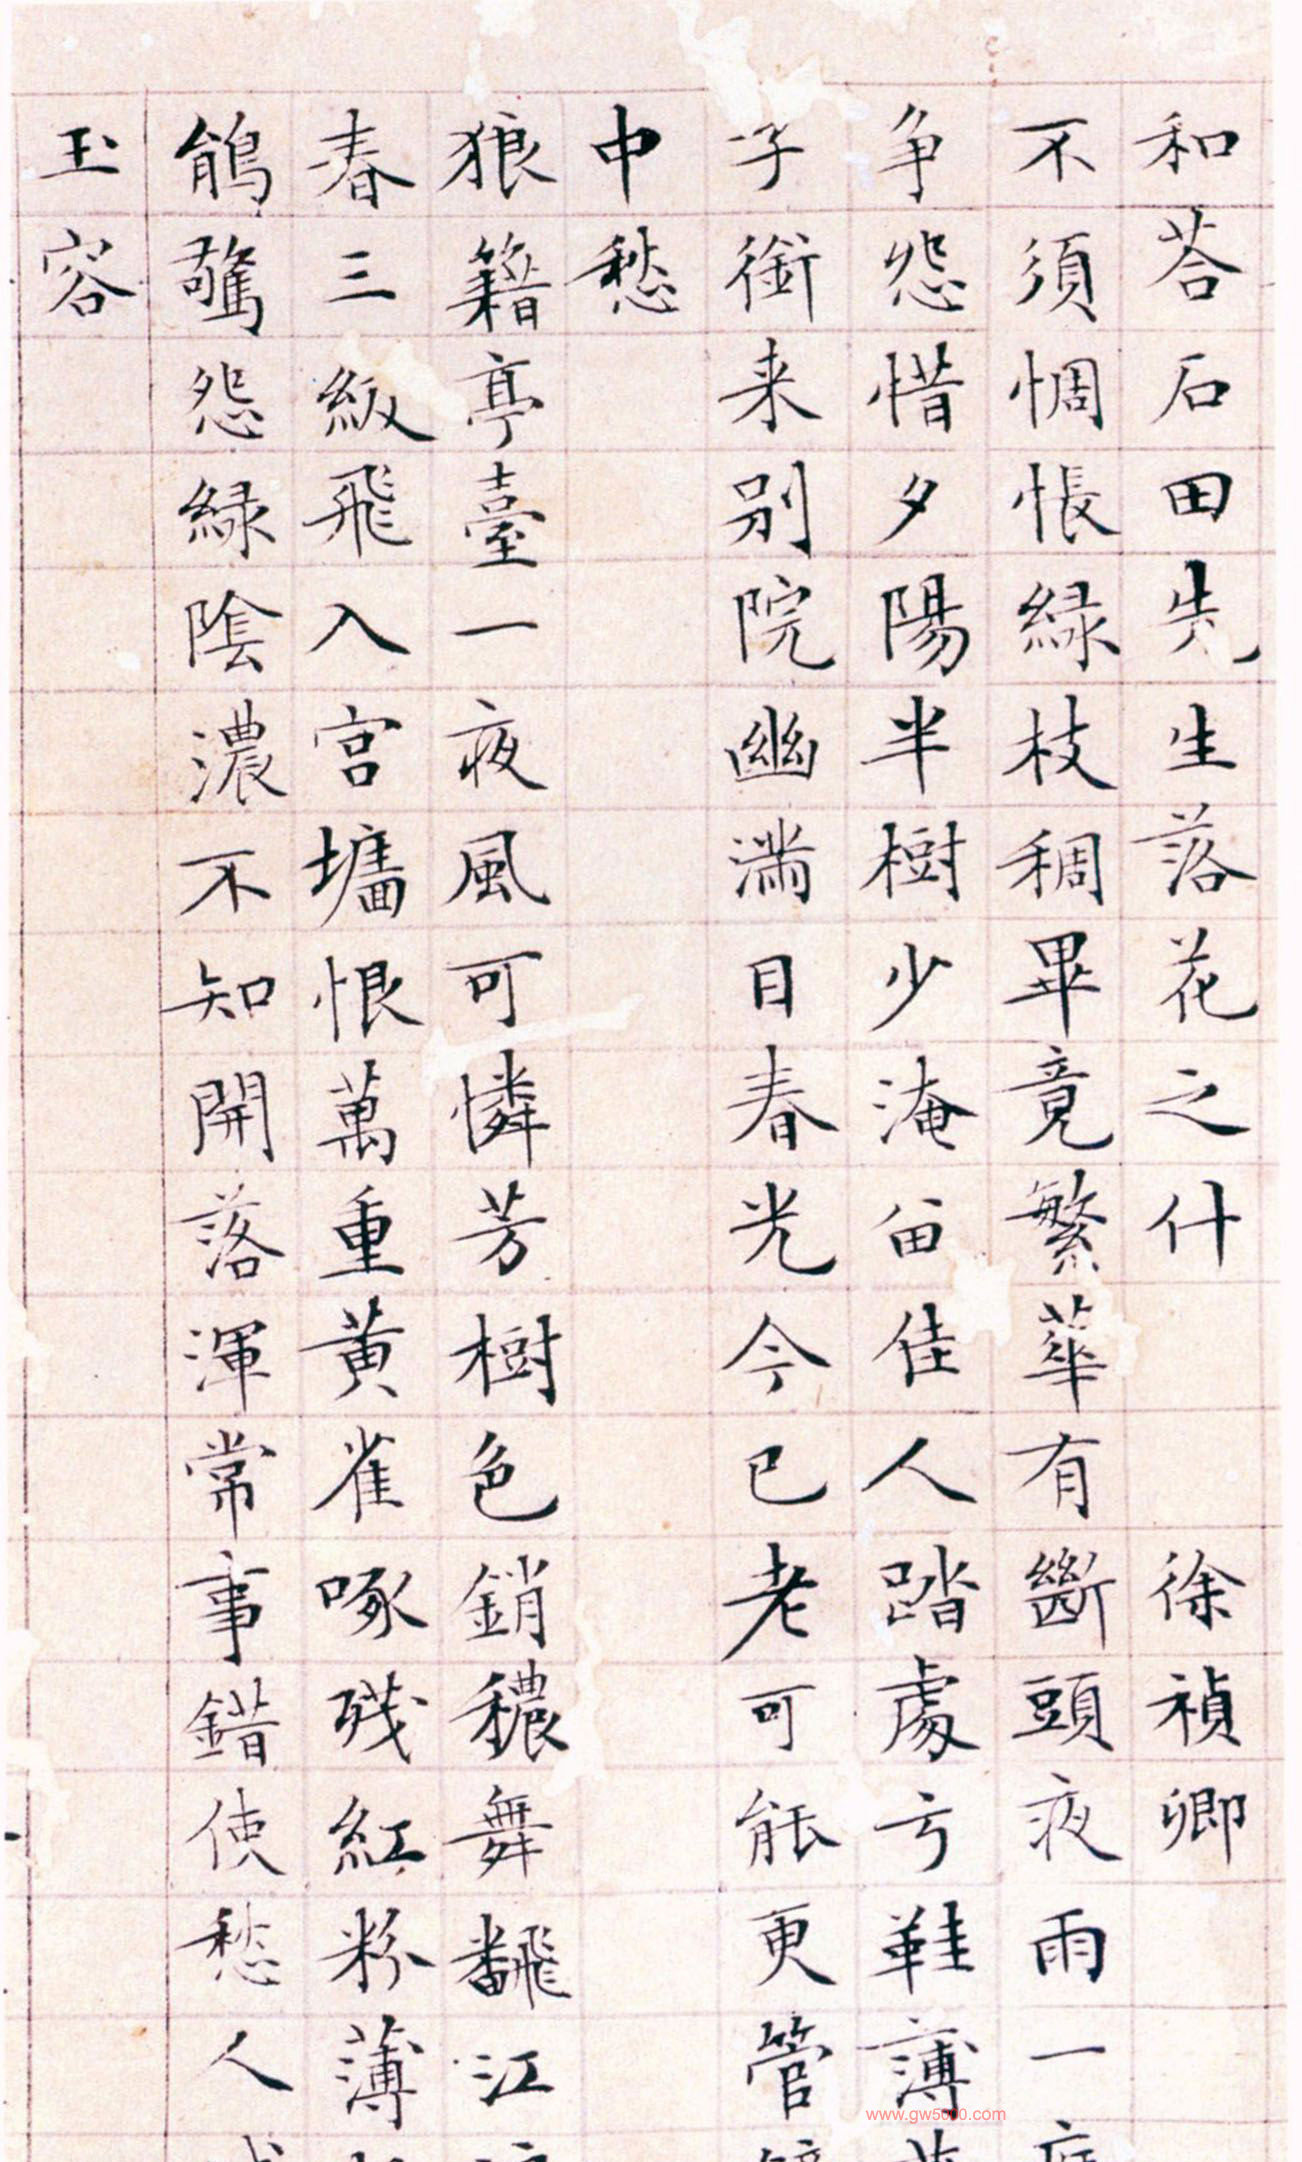 和荅石田先生落花之什 徐禎卿
不須惆悵緑枝稠畢竟繁華有斷頭夜雨一
争怨惜夕陽半樹少淹留佳人踏處亏鞋薄
子銜来别院幽滿目春光今已老可能更管
中愁
狼籍亭臺一夜風可憐芳樹色銷穠舞飜江
春三級飛入宫墻恨萬重黄雀啄残紅粉薄
鵃驚怨緑陰濃不知開落渾常事錯使愁人
玉容
www.gw5000.com